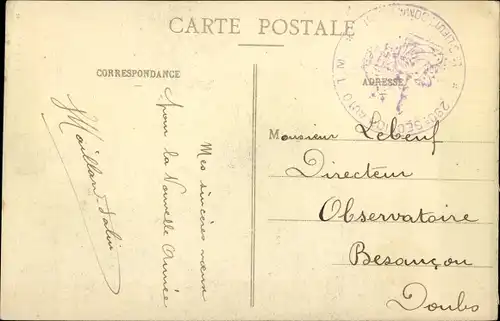 CARTE POSTALE
CORRESPONDANCE
ADRESSE
Mes sincères vœux
pour la Nouvelle Année
Monsieur Lebeuf
Directeur
Observatoire
Besançon
Doubs